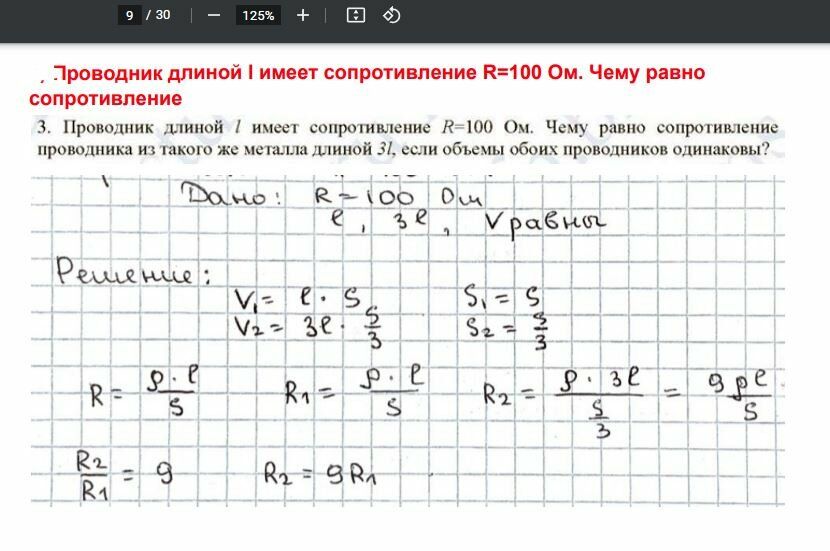 9 / 30 — 125% +
Проводник длиной l имеет сопротивление R=100 Ом. Чему равно
сопротивление
3. Проводник длиной l имеет сопротивление R=100 Ом. Чему равно сопротивление
проводника из такого же металла длиной 3l, если объемы обоих проводников одинаковы?
Дано: R = 100 Ом
l, 3l, V равны
Решение:
V₁ = l · S S₁ = S
V₂ = 3l · S/3 S₂ = S/3
R = ρ · l / S R₁ = ρ · l / S R₂ = ρ · 3l / (S/3) = 9ρl / S
R₂/R₁ = 9 R₂ = 9R₁